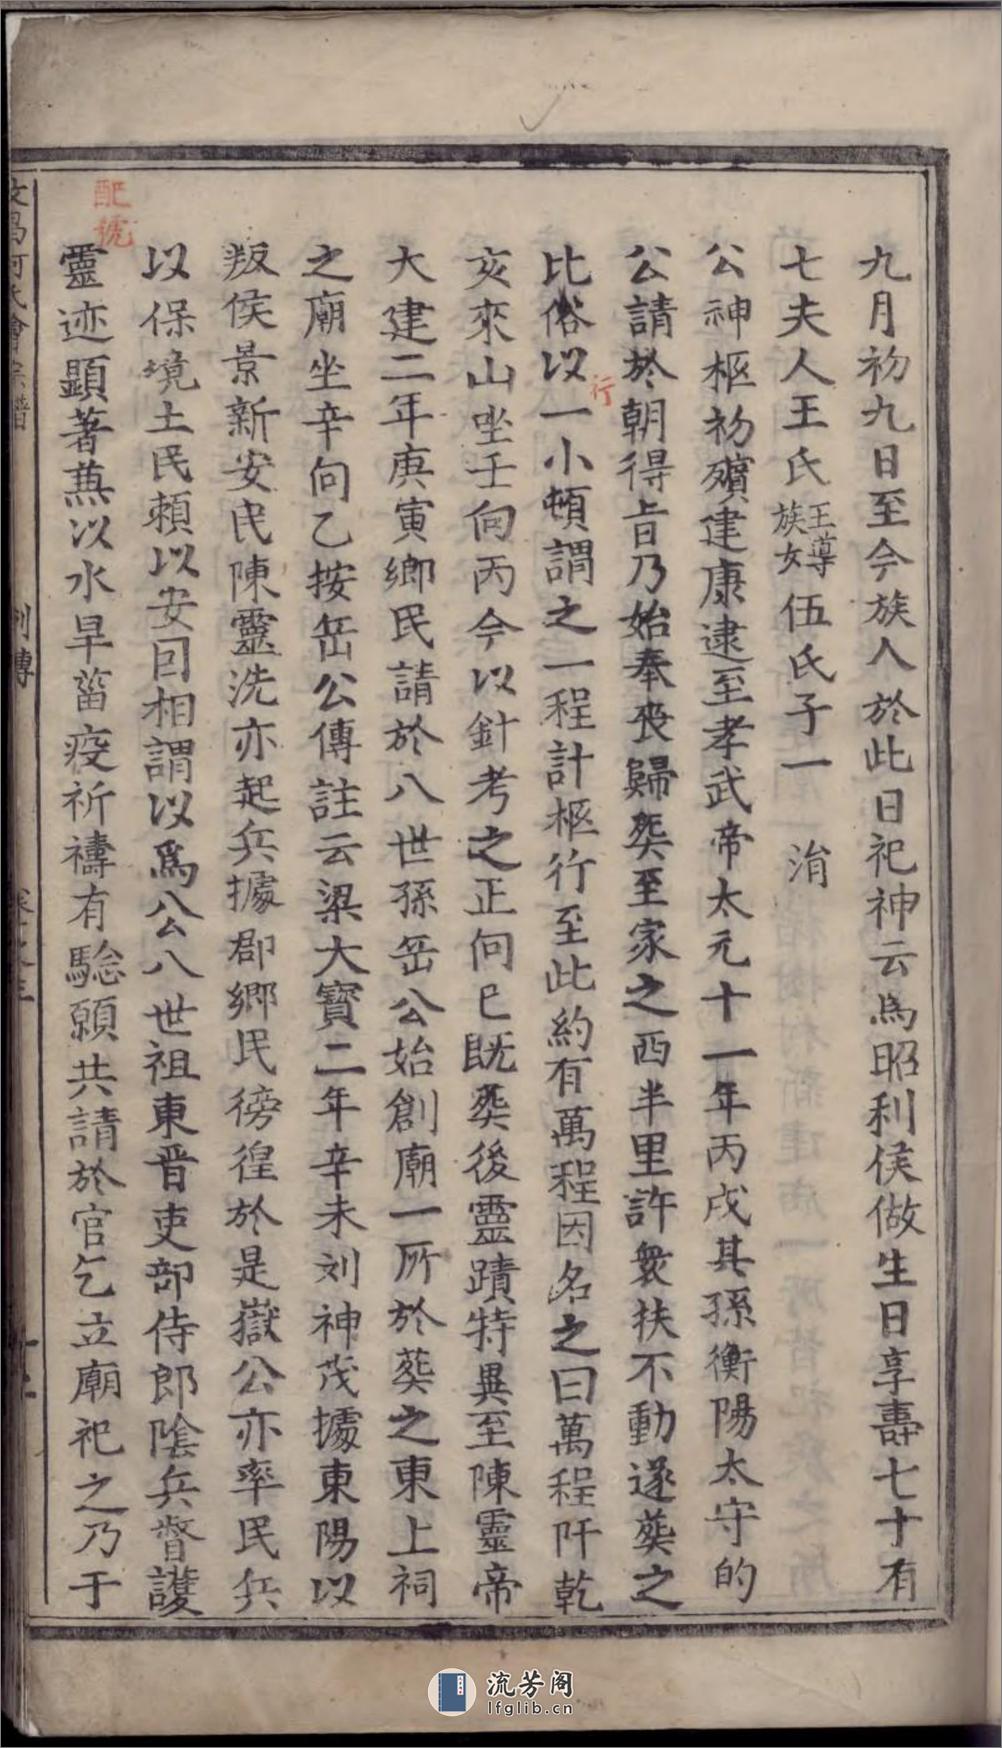 九月初九日至今族人於此日祀神云為昭利侯做生日享壽七十有
七夫人王氏王尊族女伍氏子一　洧
公神柩初殯建康逮至孝武帝太元十一年丙戌其孫衡陽太守的
公請於朝得旨乃始奉喪歸葬至家之西半里許衆扶不動遂葬之
比俗以一小頓謂之一程計柩行至此約有萬程因名之曰萬程阡乾
行
亥來山坐壬向丙今以針考之正向巳既葬後靈蹟特異至陳靈帝
大建二年庚寅鄉民請於八世孫岳公始創廟一所於葬之東上祠
之廟坐辛向乙按岳公傳註云梁大寶二年辛未刘神茂據東陽以
叛侯景新安民陳靈洗亦起兵據郡鄉民徬徨於是嶽公亦率民兵
以保境土民賴以安囙相謂以為公八世祖東晋吏部侍郎陰兵督護
靈迹顕著蕪以水旱菑疫祈禱有驗願共請於官乞立廟祀之乃于
配號
何氏會宗譜
列傳
流芳阁
lfglib.cn